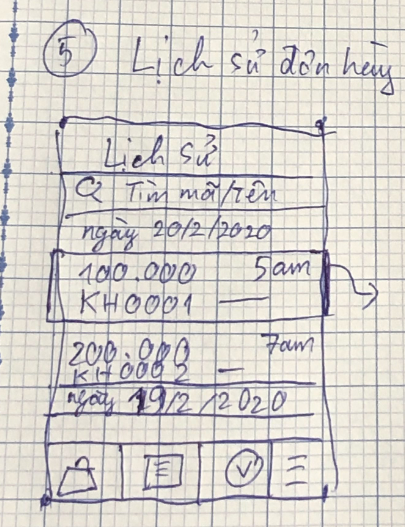 5 Lịch sử đơn hàng
Lịch sử
Tìm mã/tên
ngày 20/2/2020
100.000 5am
KH0001
200.000 7am
KH0002
ngày 19/2/2020